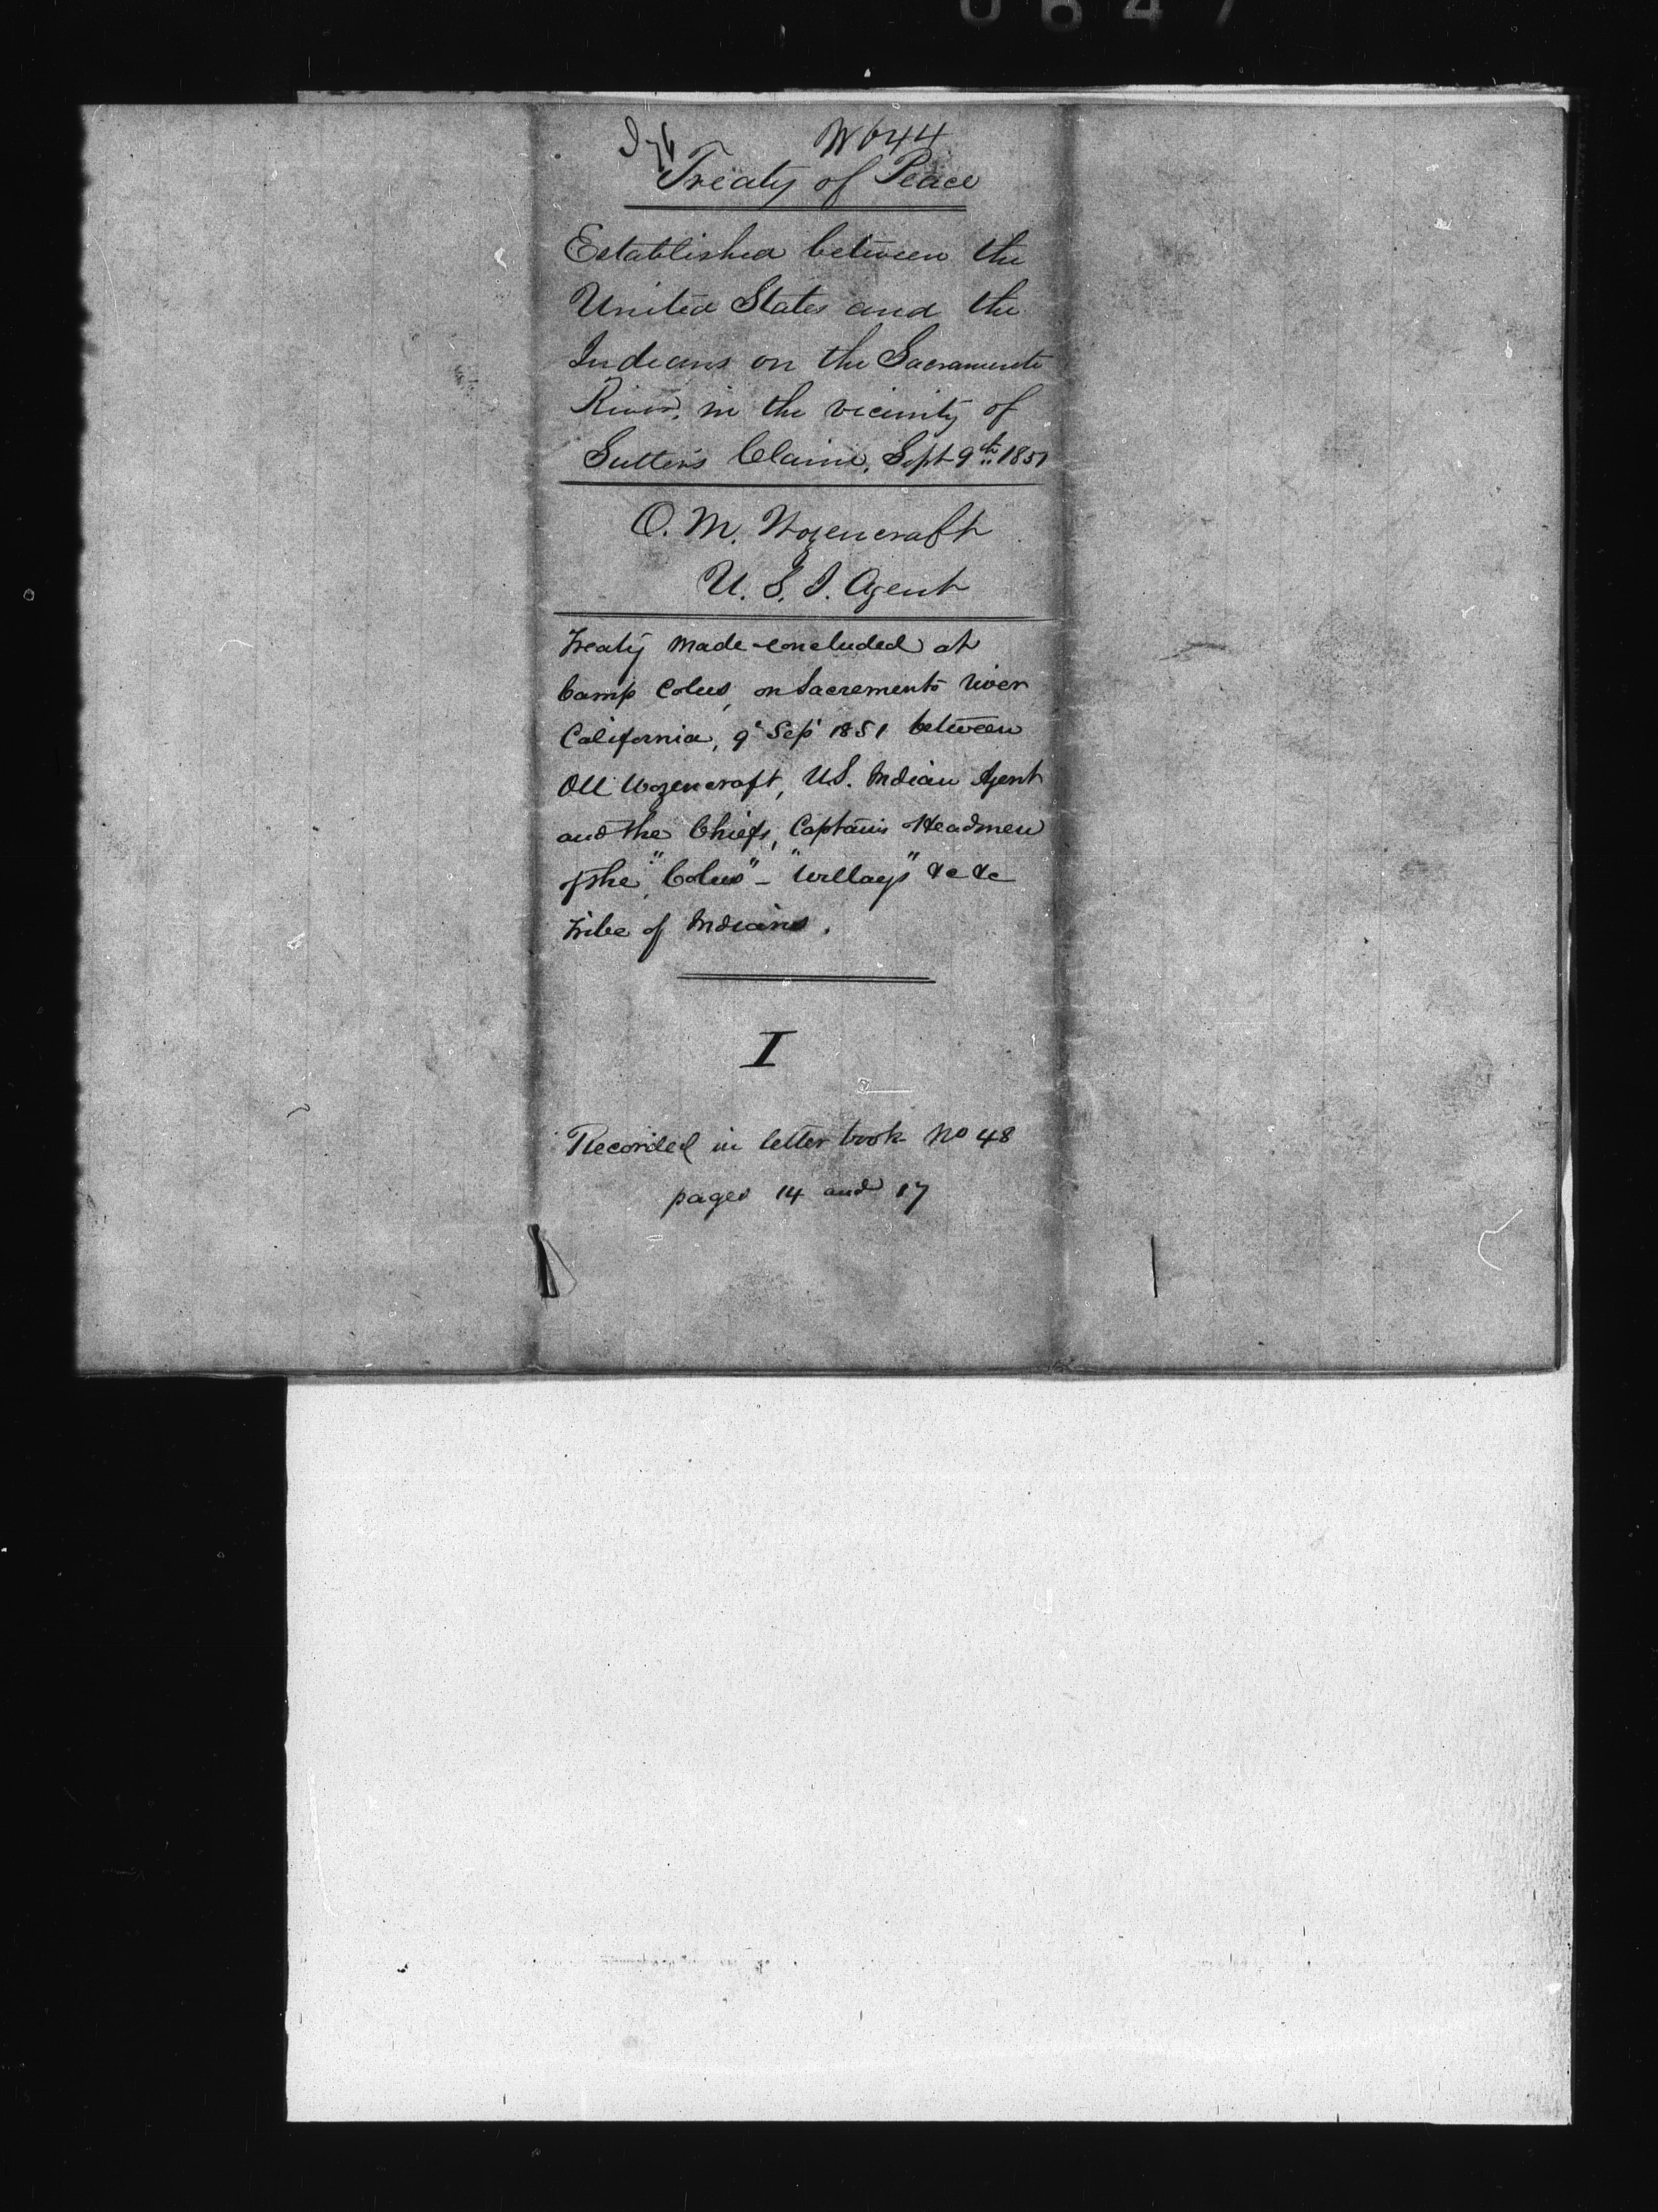 0647
W644
Treaty of Peace
Established between the
United States and the
Indians on the Sacramento
River, in the vicinity of
Sutter's Claim, Sept 9th 1851
O. M. Wozencraft
U. S. I. Agent
Treaty made & concluded at
Camp Colus, on Sacremento river
California, 9 Sep 1851 between
OM Wozencraft, US. Indian Agent
and the Chiefs, Captains & Headmen
of the "Colus" - "Willays" &c &c
tribe of Indians.
I
Recorded in letter book No 48
pages 14 and 17